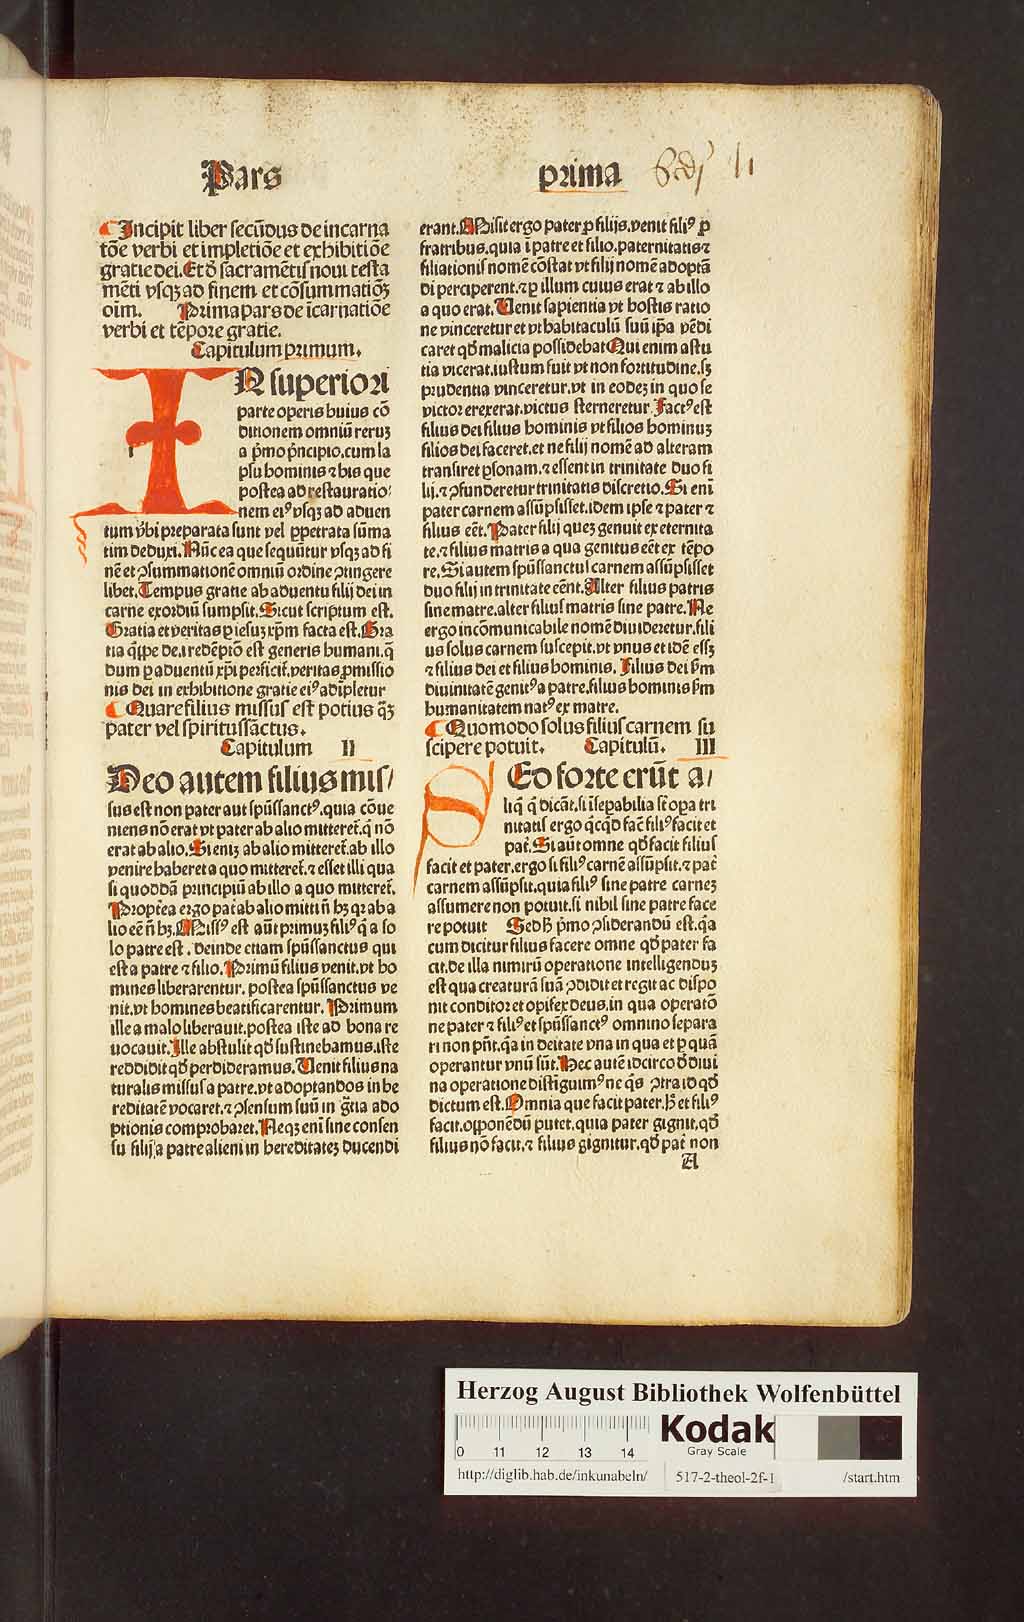 Pars prima
Incipit liber secūdus de incarna
tōe verbi et impletiōe et exhibitiōe
gratie dei. Et d̄ sacramētis noui testa
mēti vsqꝫ ad finem et cōsummatiōꝫ
oīm. Prima pars de īcarnatiōe
verbi et tēpore gratie.
Capitulum primum.
IN superiori
parte operis huius cō
ditionem omniū reruꝫ
a pͥmo pͥncipio. cum la
psu hominis ⁊ his que
postea ad restauratio⸗
nem eiꝰ vsqꝫ ad aduen
tum v̄bi preparata sunt vel ꝑpetrata sūma
tim deduxi. Nūc ea que sequūtur vsqꝫ ad fi
nē et ꝯsummationē omniū ordine ꝯtingere
libet. Tempus gratie ab aduentu filij dei in
carne exordiū sumpsit. Sicut scriptum est.
Gratia et veritas ꝑ iesuꝫ xp̄m facta est. Gra
tia q̄ppe dei redēptio est generis humani. q̄
dum ꝑ aduentū xp̄i perficit᷑. veritas ꝓmissio
nis dei in exhibitione gratie eiꝰ adīpletur
Quare filius missus est potius q̄ꝫ
pater vel spiritussāctus.
Capitulum II
Deo autem filius mis/
sus est non pater aut spūssanctꝰ. quia cōue
niens nō erat vt pater ab alio mitteret᷑. q̄ nō
erat ab alio. Si eniꝫ ab alio mitteret᷑. ab illo
venire haberet a quo mitteret᷑. ⁊ esset illi qua
si quoddā principiū ab illo a quo mitteret᷑.
Propt̄ea ergo pat̄ ab alio mitti nͫ hꝫ qr ab a
lio eē nͫ hꝫ. Missꝰ est aūt primuꝫ filiꝰ q̄ a so
lo patre est. deinde etiam spūssanctus qui
est a patre ⁊ filio. Primū filius venit. vt ho
mines liberarentur. postea spūssanctus ve
nit. vt homines beatificarentur. Primum
ille a malo liberauit. postea iste ad bona re
uocauit. Ille abstulit qd̄ sustinebamus. iste
reddidit qd̄ perdideramus. Uenit filius na
turalis missus a patre. vt adoptandos in he
reditatē vocaret. ⁊ ꝯsensum suū in gr̄tia ado
ptionis comprobaret. Neqꝫ enī sine consen
su filij a patre alieni in hereditateꝫ ducendi
erant. Misit ergo pater ꝓ filijs. venit filiꝰ ꝓ
fratribus. quia ī patre et filio. paternitatis ⁊
filiationis nomē cōstat vt filij nomē adoptā
di perciperent. ⁊ ꝑ illum cuius erat ⁊ ab illo
a quo erat. Uenit sapientia vt hostis ratio
ne vinceretur et vt habitaculū suū ip̄a vēdi
caret qd̄ malicia possidebat Qui enim astu
tia vicerat. iustum fuit vt non fortitudine. sꝫ
prudentia vinceretur. vt in eodeꝫ in quo se
victor erexerat. victus sterneretur. Factꝰ est
filius dei filius hominis vt filios hominuꝫ
filios dei faceret. et ne filij nomē ad alteram
transiret ꝑsonam. ⁊ essent in trinitate duo fi
lij. ⁊ ꝯfunderetur trinitatis discretio. Si enī
pater carnem assūpsisset. idem ipse ⁊ pater ⁊
filius eēt. Pater filij queꝫ genuit ex eternita
te. ⁊ filius matris a qua genitus eēt ex tēpo
re. Si autem spūssanctus carnem assūpsisset
duo filij in trinitate eēnt. Alter filius patris
sine matre. alter filius matris sine patre. Ne
ergo incōmunicabile nomē diuideretur. fili
us solus carnem suscepit. vt vnus et idē essꝫ
⁊ filius dei et filius hominis. Filius dei s̄m
diuinitatē genitꝰ a patre. filius hominis s̄m
humanitatem natꝰ ex matre.
Quomodo solus filius carnem su
scipere potuit. Capitulū. III
SEd forte erūt a/
liq̄ q̄ dicāt. si īsepabilia st̄ opa tri
nitatis ergo q̄cqd̄ fac᷑ filiꝰ facit et
pat̄. Si aūt omne qd̄ facit filius
facit et pater. ergo si filiꝰ carnē assūpsit. ⁊ pat̄
carnem assūpsit. quia filiꝰ sine patre carneꝫ
assumere non potuit. si nihil sine patre face
re potuit Sed h̄ pͥmo ꝯsiderandū est. q̄a
cum dicitur filius facere omne qd̄ pater fa
cit. de illa nimirū operatione intelligenduꝫ
est qua creaturā suā ꝯdidit et regit ac dispo
nit conditor et opifex deus. in qua operatō
ne pater ⁊ filiꝰ et spūssanctꝰ omnino separa
ri non pn̄t. q̄a in deitate vna in qua et ꝑ quā
operantur vnū sūt. Nec autē idcirco d̄ diui
na operatione distīguimꝰ ne q̄s ꝯtra id qd̄
dictum est. Omnia que facit pater. h̄ et filiꝰ
facit. opponēdū putet. quia pater gignit. qd̄
filius nō facit. ⁊ filius gignitur. qd̄ pat̄ non
A
Herzog August Bibliothek Wolfenbüttel
0 11 12 13 14
Kodak
Gray Scale
http://diglib.hab.de/inkunabeln/ 517-2-theol-2f-1 /start.htm